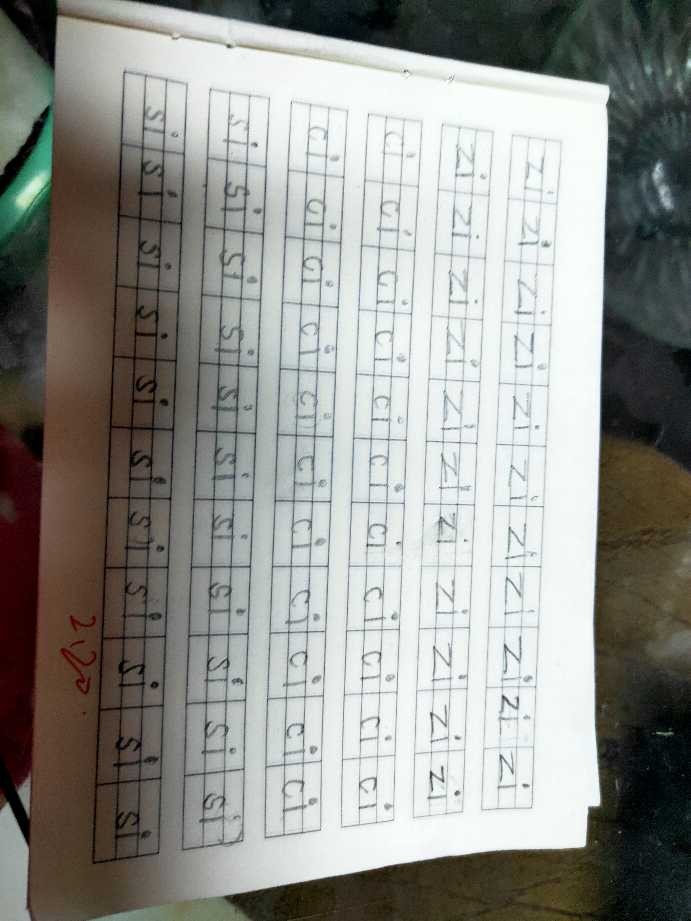 zi zi zi zi zi zi zi zi zi zi zi
zi zi zi zi zi zi zi zi zi zi zi
ci ci ci ci ci ci ci ci ci ci ci
ci ci ci ci ci ci ci ci ci ci ci
si si si si si si si si si si si
si si si si si si si si si si si